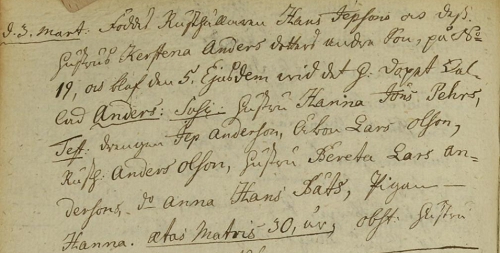 d. 3. Mart: Föddes Rusthållaren Hans Jepsons och dess
Hustrus Kerstena Anders dotters andra Son, på No
19, och blef den 5. Ejusdem wid det h: dopat kal-
lad Anders: Susc: Hustru Hanna Jöns Pehrs,
Test: drengen Jep Anderson, Åbon Lars Olson,
Rusth: Anders Olson, Hustru Bereta Lars An-
dersons, do Anna Hans Båts, Pigan —
Hanna. ætas Matris 30, år, obst: Hustru